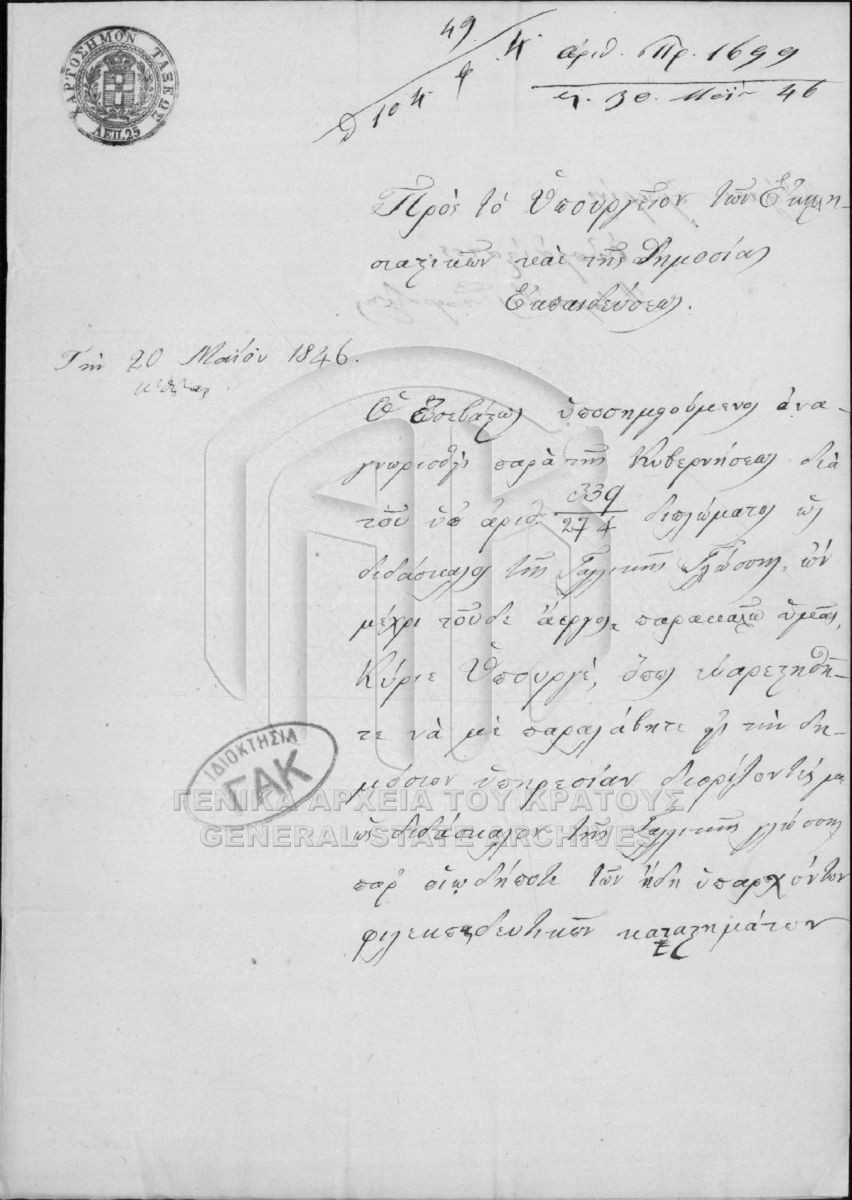 ΧΑΡΤΟΣΗΜΟΝ ΤΑΞΕΩΣ
ΛΕΠ.25
49
4.
104 φ
ἀριθ. Πρ. 1699
30. Μαΐ 46
Πρὸς τὸ Ὑπουργεῖον τῶν Ἐκκλη-
σιαστικῶν καὶ τῆς Δημοσίας
Ἐκπαιδεύσεως.
Τὴν 20 Μαΐου 1846.
Ὁ Εὐσεβάστως ὑποσημειούμενος ἀνα-
γνωρισθεὶς παρὰ τῆς Κυβερνήσεως διὰ
τοῦ ὑπ' ἀριθ. 339/274 διπλώματος ὡς
διδάσκαλος τῆς Γαλλικῆς Γλώσσης, ὢν
μέχρι τοῦδε ἄεργος, παρακαλῶ ὑμᾶς,
Κύριε Ὑπουργέ, ὅπως εὐαρεστηθῆ-
τε νὰ μὲ παραλάβητε εἰς τὴν δη-
μόσιον ὑπηρεσίαν διορίζοντές με
ὡς διδάσκαλον τῆς Γαλλικῆς γλώσσης
παρ' οἱῳδήποτε τῶν ἤδη ὑπαρχόντων
φιλεκπαιδευτικῶν καταστημάτων
ΙΔΙΟΚΤΗΣΙΑ
ΓΑΚ
ΓΕΝΙΚΑ ΑΡΧΕΙΑ ΤΟΥ ΚΡΑΤΟΥΣ
GENERAL STATE ARCHIVES